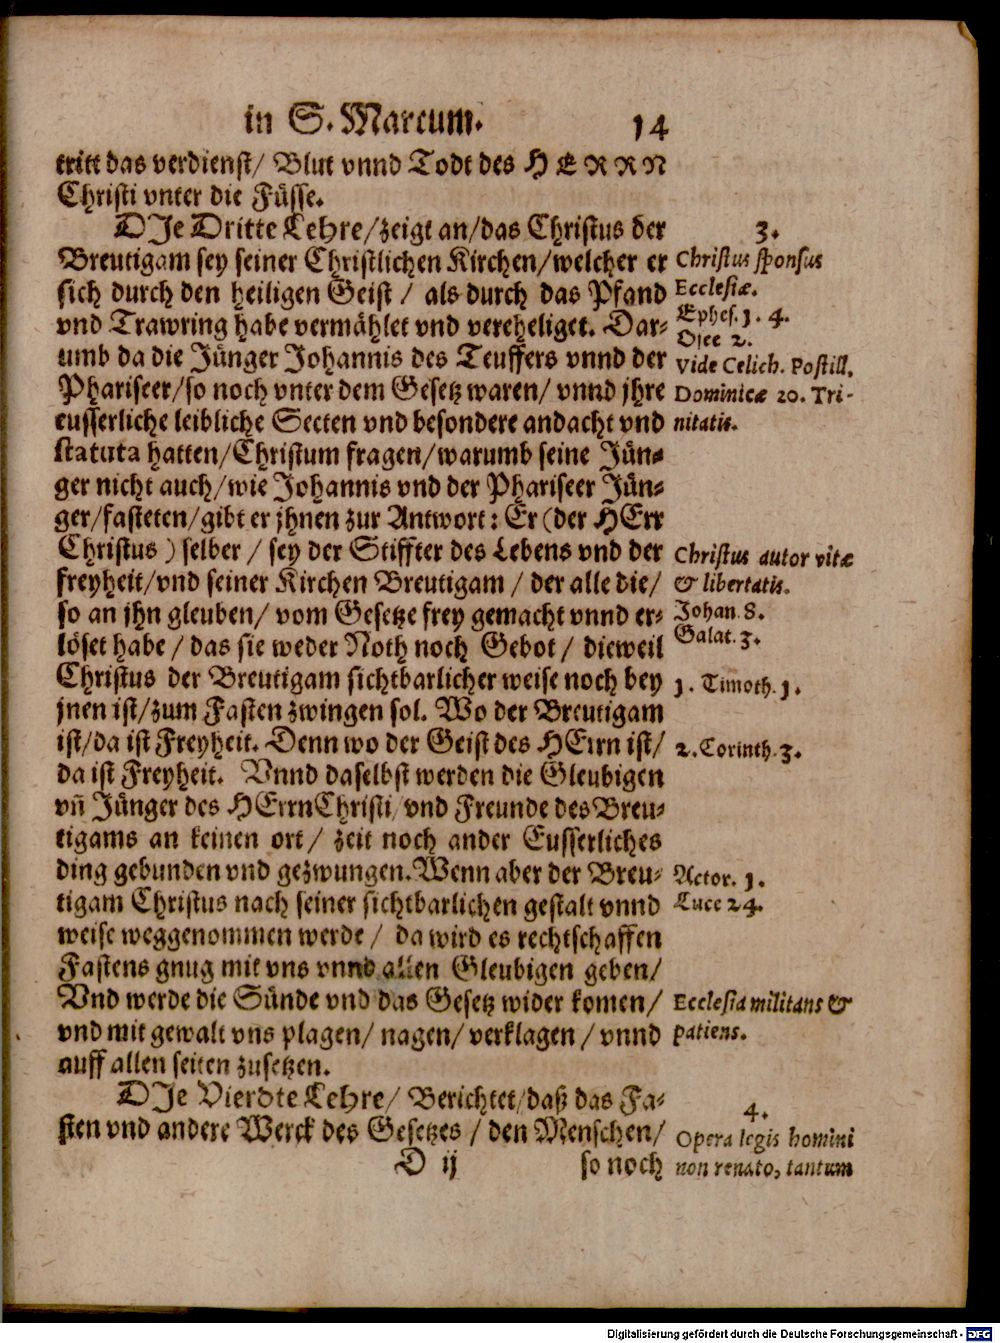 in S. Marcum. 14
tritt das verdienst/ Blut vnnd Todt des HERRN
Christi vnter die Füsse.
DIe Dritte Lehre/zeigt an/das Christus der
Breutigam sey seiner Christlichen Kirchen/welcher er
sich durch den heiligen Geist / als durch das Pfand
vnd Trawring habe vermählet vnd vereheliget. Dar-
umb da die Jünger Johannis des Teuffers vnnd der
Phariseer/so noch vnter dem Gesetz waren/ vnnd jhre
eusserliche leibliche Secten vnd besondere andacht vnd
statuta hatten/Christum fragen/warumb seine Jün-
ger nicht auch/wie Johannis vnd der Phariseer Jün-
ger/fasteten/gibt er jhnen zur Antwort: Er (der HErr
Christus) selber / sey der Stiffter des Lebens vnd der
freyheit/vnd seiner Kirchen Breutigam / der alle die/
so an jhn gleuben/ vom Gesetze frey gemacht vnnd er-
löset habe / das sie weder Noth noch Gebot / dieweil
Christus der Breutigam sichtbarlicher weise noch bey
jnen ist/zum Fasten zwingen sol. Wo der Breutigam
ist/da ist Freyheit. Denn wo der Geist des HErrn ist/
da ist Freyheit. Vnnd daselbst werden die Gleubigen
vñ Jünger des HErrn Christi/ vnd Freunde des Breu-
tigams an keinen ort/ zeit noch ander Eusserliches
ding gebunden vnd gezwungen. Wenn aber der Breu-
tigam Christus nach seiner sichtbarlichen gestalt vnnd
weise weggenommen werde / da wird es rechtschaffen
Fastens gnug mit vns vnnd allen Gleubigen geben/
Vnd werde die Sünde vnd das Gesetz wider komen/
vnd mit gewalt vns plagen/ nagen/ verklagen / vnnd
auff allen seiten zusetzen.
DIe Vierdte Lehre/ Berichtet/daß das Fa-
sten vnd andere Werck des Gesetzes / den Menschen/
D ij so noch
3.
Christus sponsus
Ecclesiæ.
Ephes. 1. 4.
Osee 2.
Vide Celich. Postill.
Dominicæ 20. Tri-
nitatis.
Christus autor vitæ
& libertatis.
Johan. 8.
Galat. 3.
1. Timoth. 1.
2. Corinth. 3.
Actor. 1.
Luce 24.
Ecclesia militans &
patiens.
4.
Opera legis homini
non renato, tantum
Digitalisierung gefördert durch die Deutsche Forschungsgemeinschaft - DFG